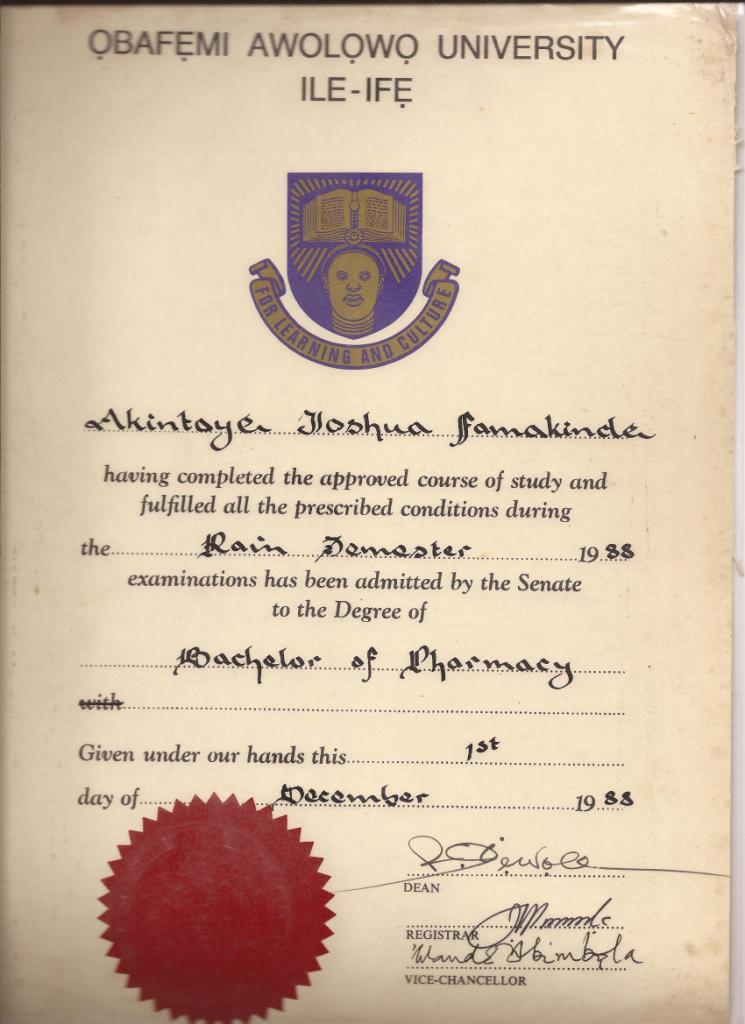 ỌBAFẸMI AWOLỌWỌ UNIVERSITY
ILE-IFẸ
FOR LEARNING AND CULTURE
Akintaye Joshua Famakinde
having completed the approved course of study and
fulfilled all the prescribed conditions during
the Rain Semester 1988
examinations has been admitted by the Senate
to the Degree of
Bachelor of Pharmacy
with
Given under our hands this 1st
day of December 1988
DEAN
REGISTRAR
Wande Abimbọla
VICE-CHANCELLOR